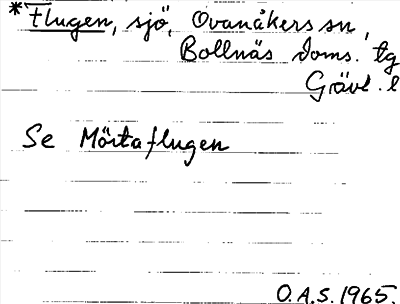 *Flugen, sjö, Ovanåkers sn,
Bollnäs doms. tg
Gävl. l
Se Mörtaflugen
O.A.S. 1965.